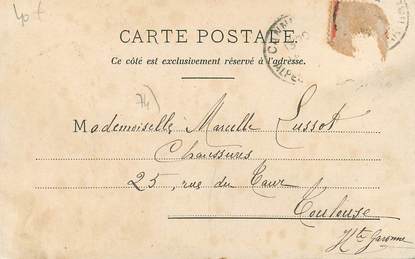 40 €
CARTE POSTALE
Ce côté est exclusivement réservé à l'adresse.
74)
Mademoiselle Marcelle Lussot
Chaussures
25, rue du Taur
Toulouse
Hte Garonne